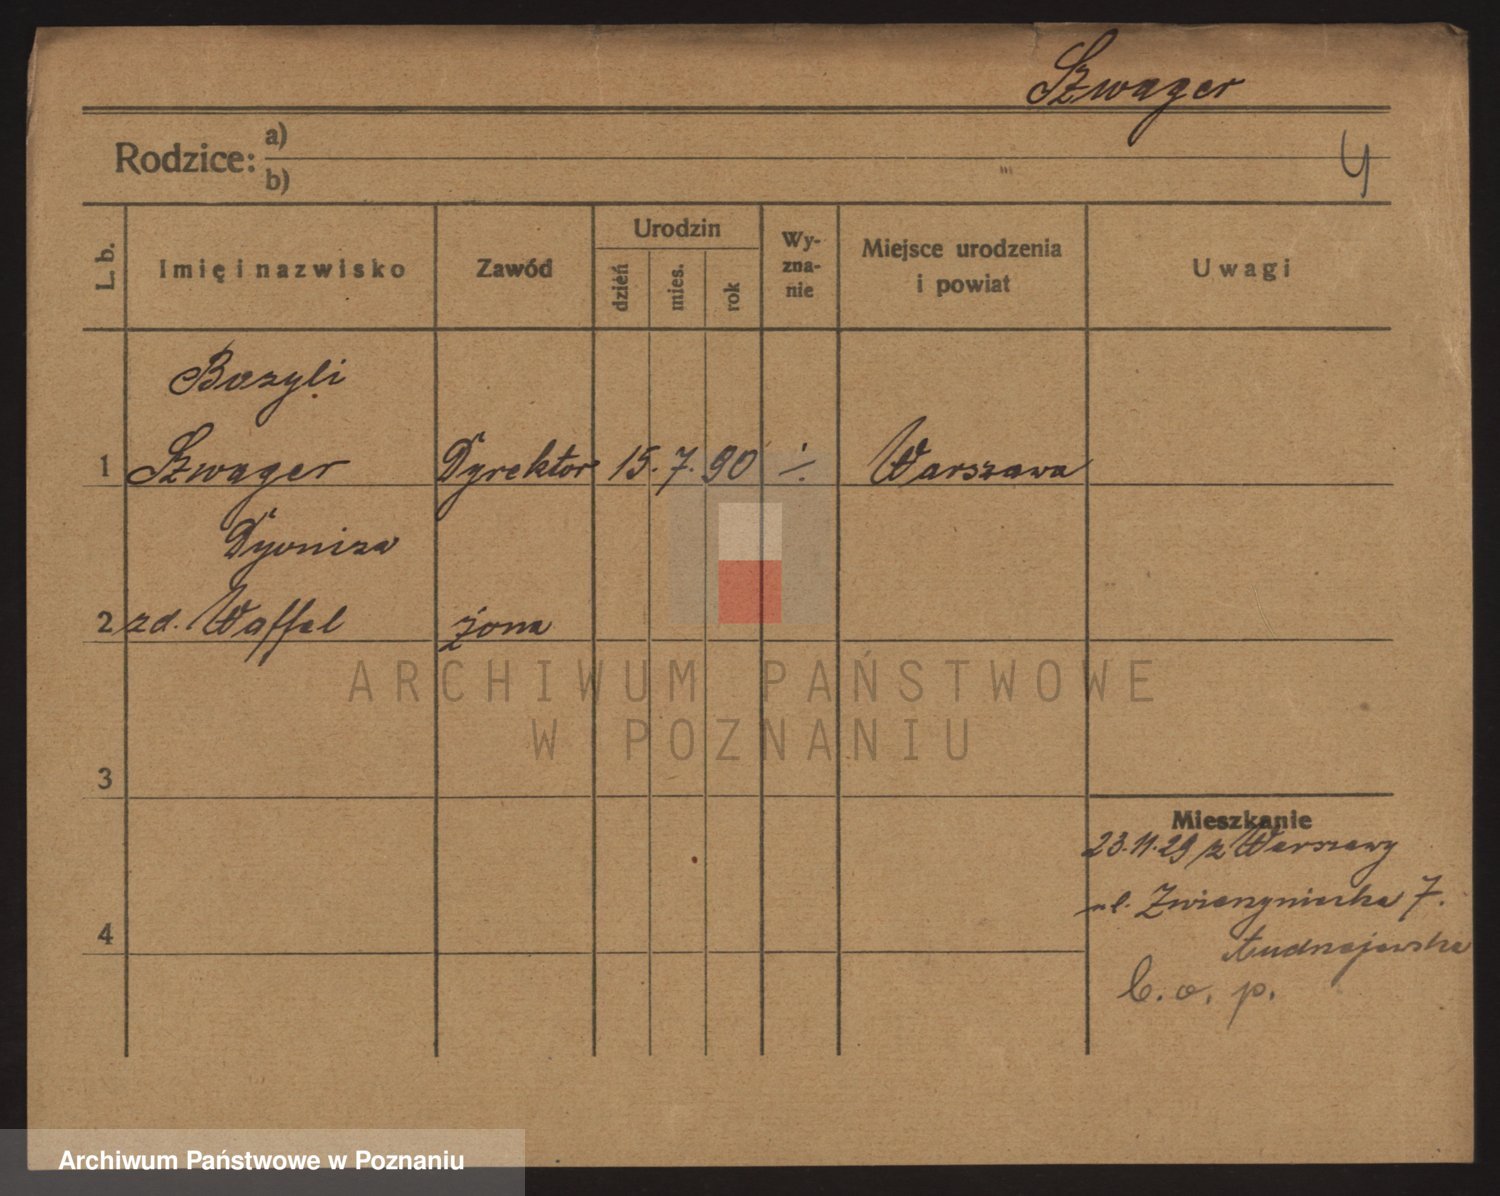 Szwager
Rodzice: a)
b)
4
L. b. Imię i nazwisko Zawód Urodzin dzień mies. rok Wy-zna-nie Miejsce urodzenia i powiat Uwagi
Bazyli
1 Szwager Dyrektor 15. 7. 90 ·/. Warszawa
Dyoniza
2 zd. Waffel żona
ARCHIWUM PAŃSTWOWE
W POZNANIU
3
Mieszkanie
23.11.29 z Warszawy
ul. Zwierzyniecka 7.
4
b. o. p.
Archiwum Państwowe w Poznaniu